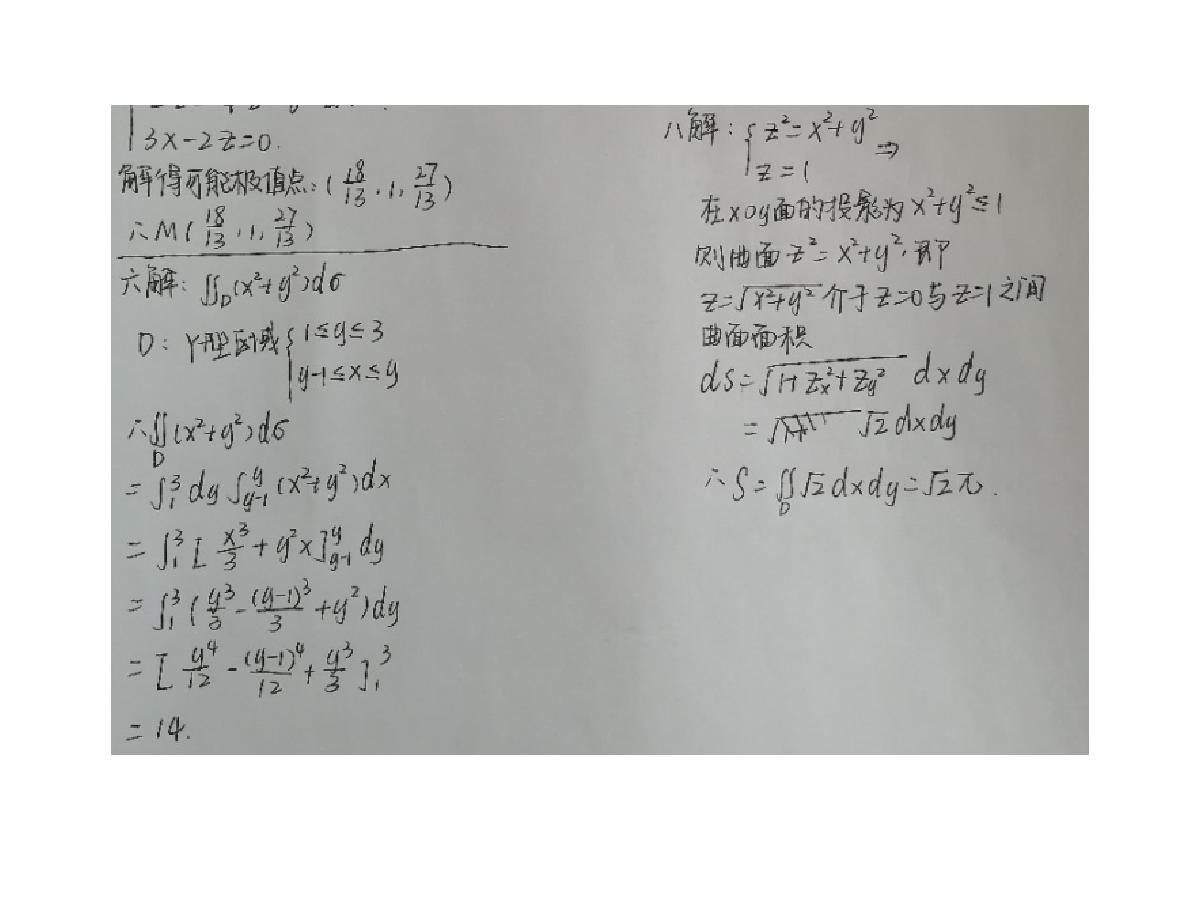 3x-2z=0.
解得可能极值点:(18/13, 1, 27/13)
∴M(18/13, 1, 27/13)
六解: ∬_D(x²+y²)dσ
D: Y-型区域{1≤y≤3
y-1≤x≤y
∴∬_D(x²+y²)dσ
=∫₁³dy∫_{y-1}^y(x²+y²)dx
=∫₁³[x³/3+y²x]_{y-1}^y dy
=∫₁³(y³/3-(y-1)³/3+y²)dy
=[y⁴/12-(y-1)⁴/12+y³/3]₁³
=14.
八解: {z²=x²+y² ⇒
z=1
在xoy面的投影为x²+y²≤1
则曲面z²=x²+y²,即
z=√(x²+y²)介于z=0与z=1之间
曲面面积
dS=√(1+Zx²+Zy²) dxdy
= √2dxdy
∴S=∬_D√2dxdy=√2π.